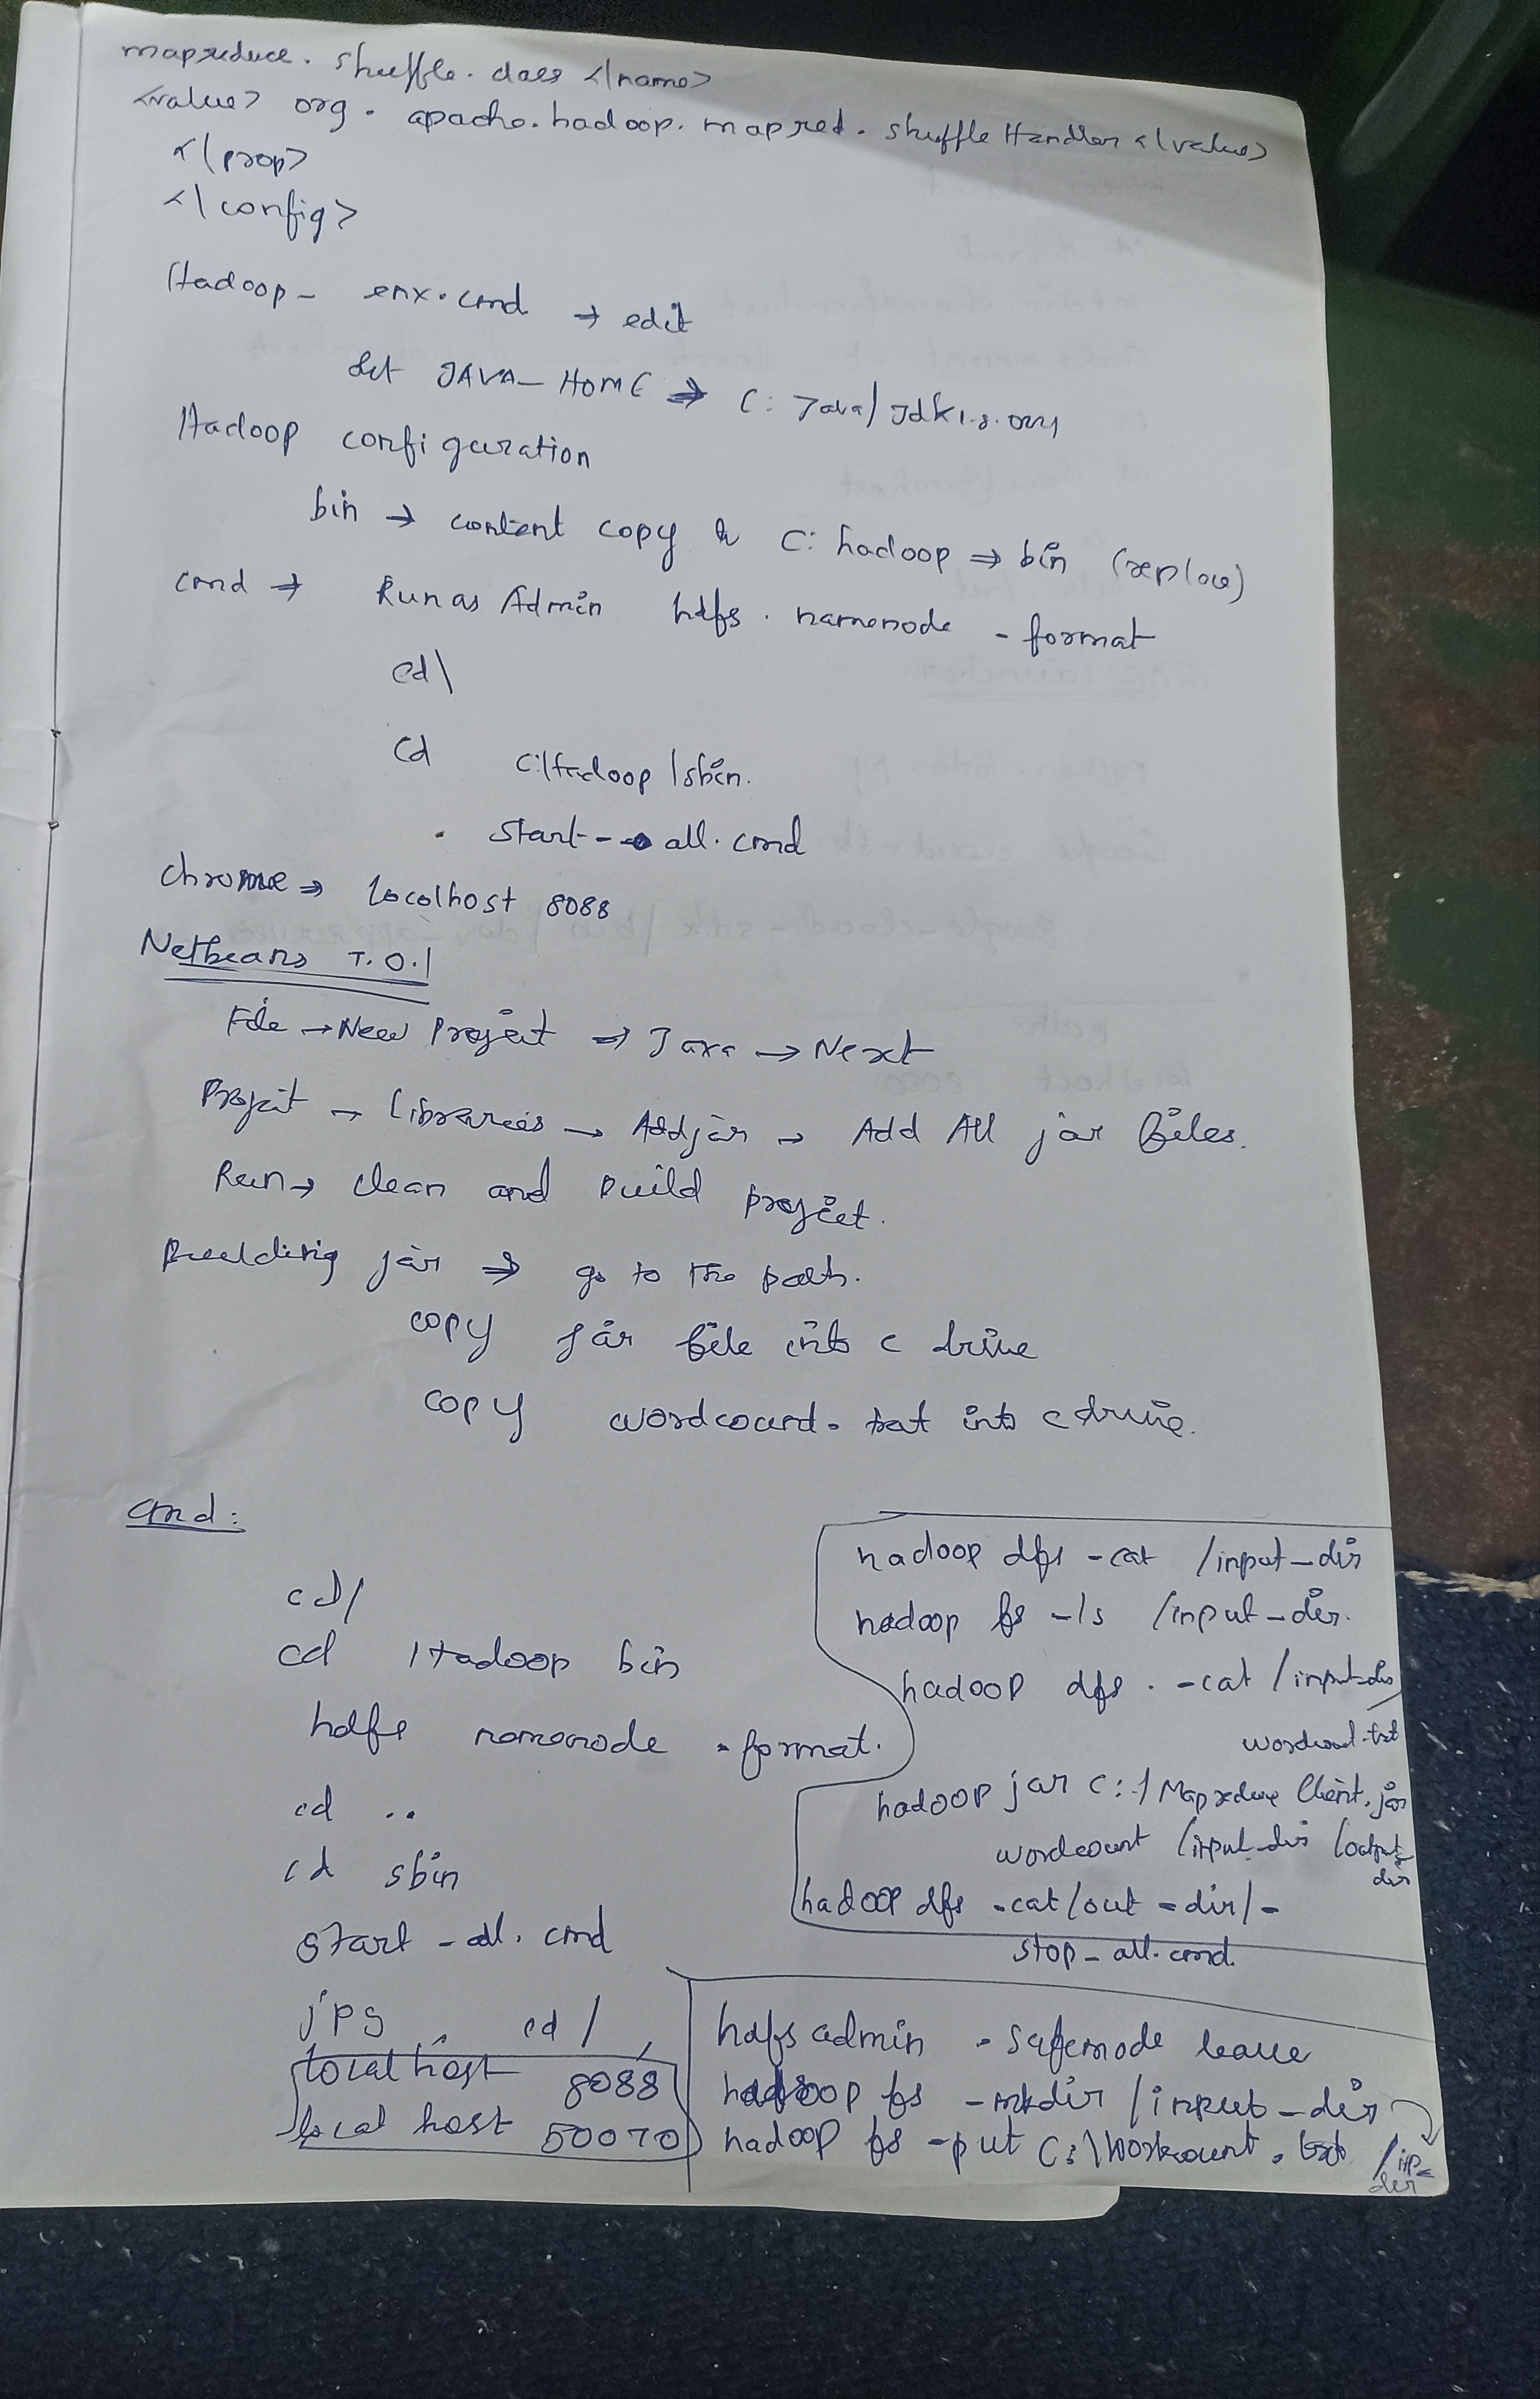 mapreduce. shuffle. class </name>
<value> org. apache. hadoop. mapred. shuffle Handler </value>
</prop>
<\config>
Hadoop - env.cmd → edit
Set JAVA_HOME ⇒ C: Java/Jdk1.8.
Hadoop configuration
bin → content copy & C: hadoop ⇒ bin (replace)
cmd → Run as Admin hdfs. namenode - format
cd\
cd C:\Hadoop \sbin.
. Start-all.cmd
chrome ⇒ localhost 8088
Netbeans 7.0.1
File → New Project ⇒ Java → Next
Project → Libraries → Add jar → Add All jar files.
Run → clean and build project.
Building jar ⇒ go to the path.
copy jar file into c drive
copy wordcount. txt into c drive.
cmd:
cd/
cd Hadoop bin
hdfs namenode -format.
cd ..
cd sbin
start - all. cmd
jps cd /
localhost 8088
local host 50070
hadoop dfs -cat /input-dir
hadoop fs -ls /input-dir.
hadoop dfs. -cat /input-dir/
wordcount.txt
hadoop jar C:\ Mapreduce Client.jar
wordcount /input-dir /output-
dir
hadoop dfs -cat /out-dir/-
stop-all.cmd.
hdfs admin - safemode leave
hadoop fs -mkdir /input-dir
hadoop fs -put C:\Wordcount. txt /inp-
dir